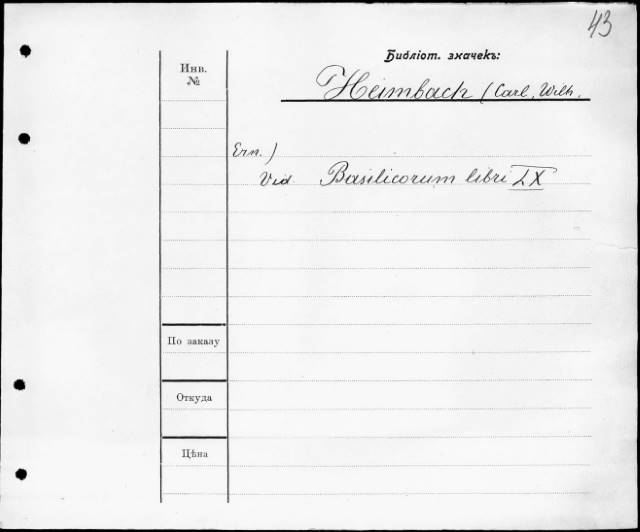 43
Библіот. значекъ:
Инв.
№
Heimbach (Carl, Wilh.
Ern.)
Vid. Basilicorum libri LX
По заказу
Откуда
Цѣна